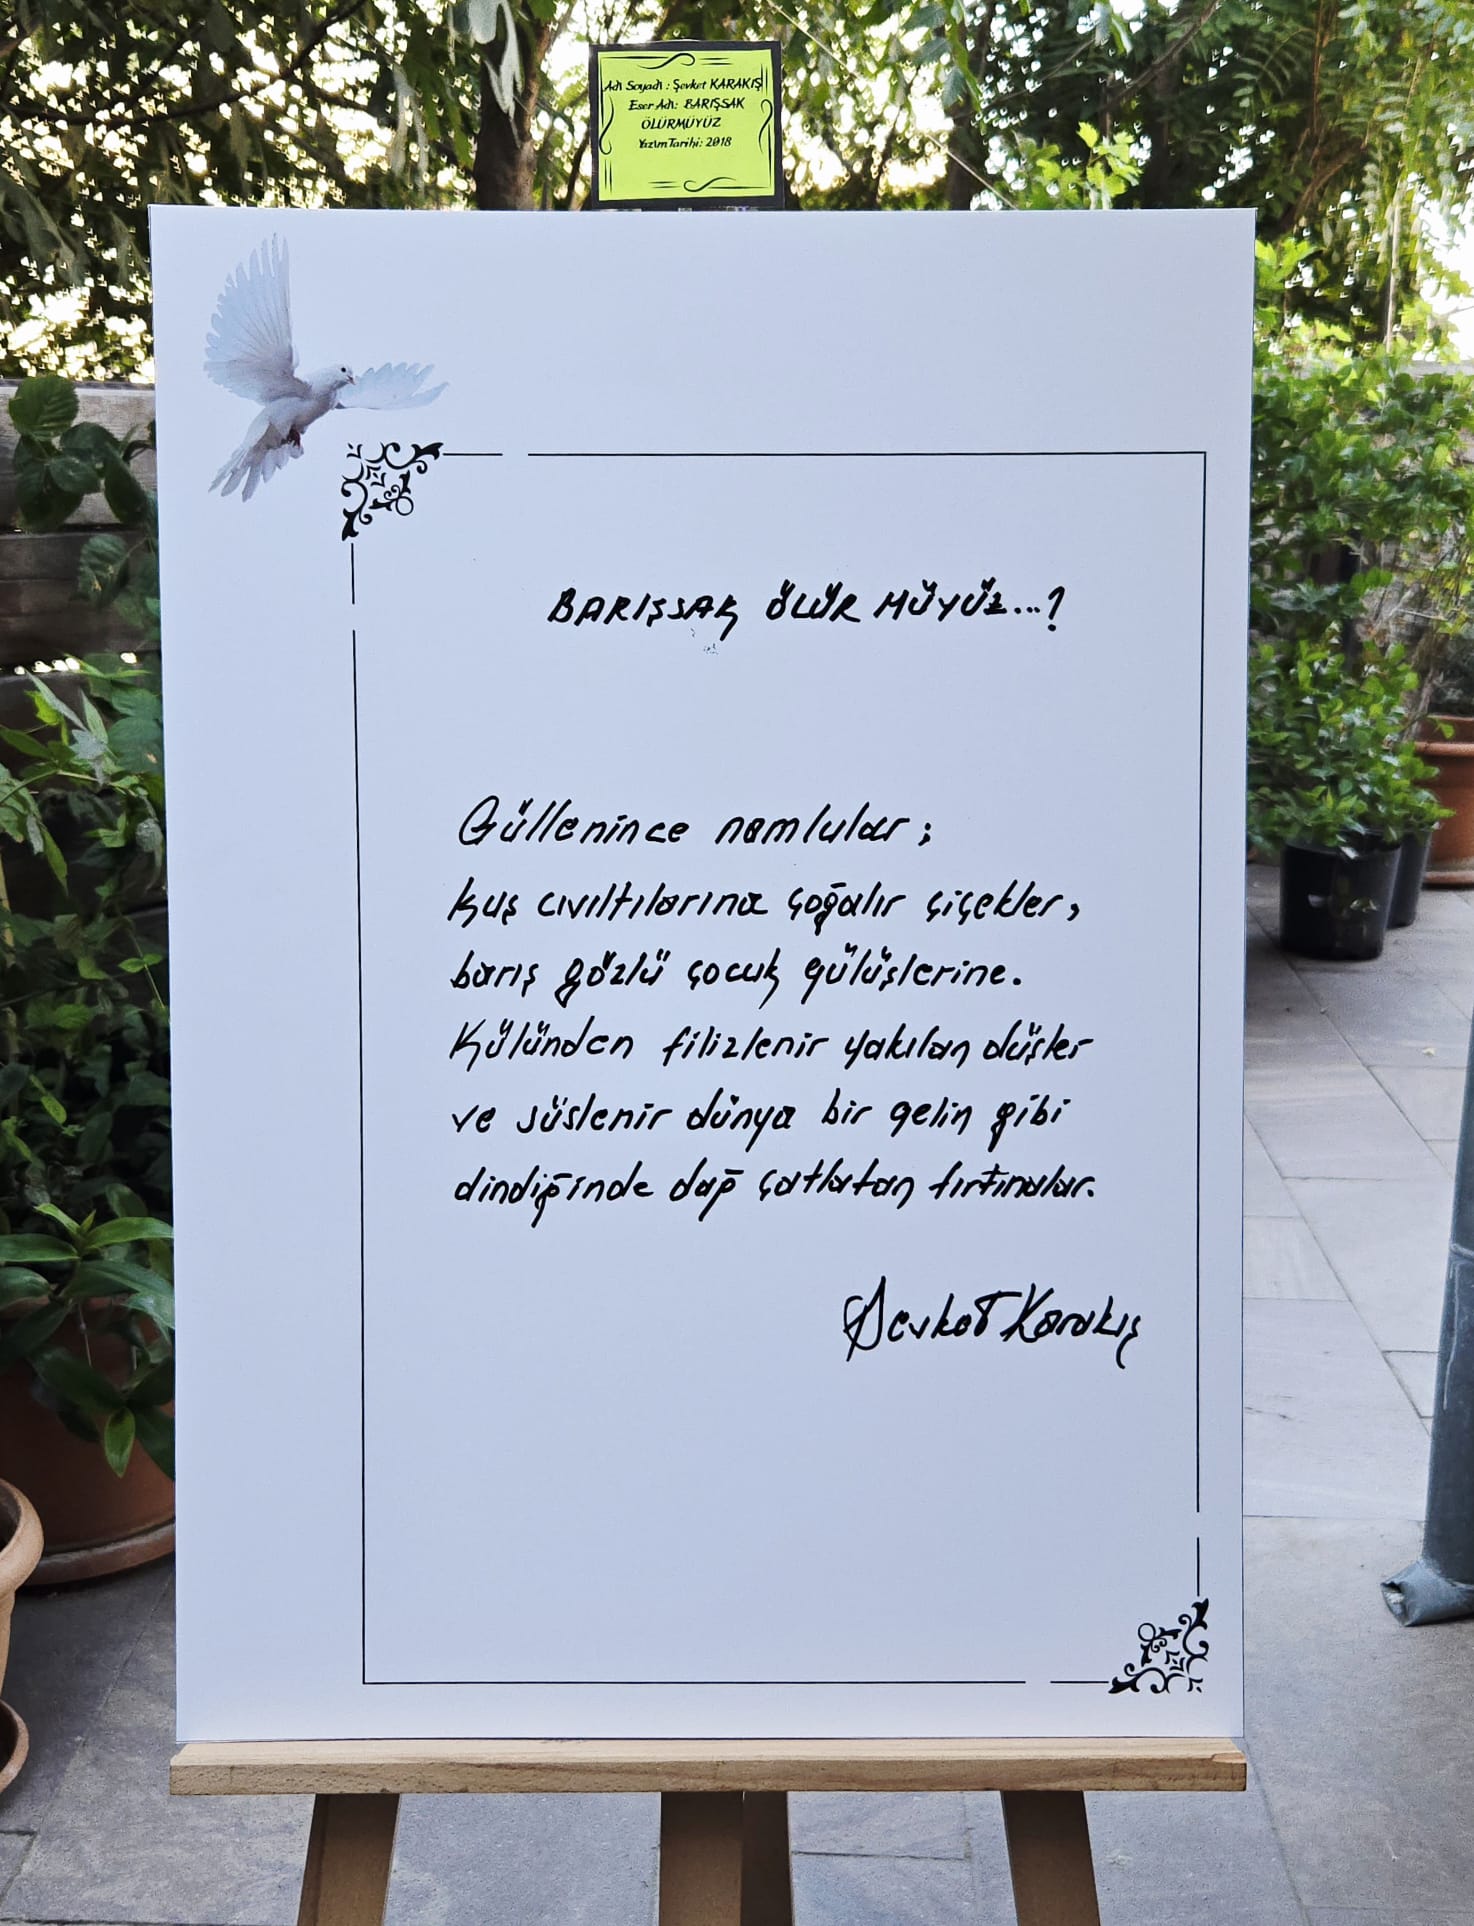 Adı Soyadı : Şevket KARAKIŞ
Eser Adı: BARIŞSAK
ÖLÜRMÜYÜZ
Yazım Tarihi: 2018
BARIŞSAK ÖLÜR MÜYÜZ...?
Güllenince namlular;
kuş cıvıltılarına çoğalır çiçekler,
barış gözlü çocuk gülüşlerine.
Külünden filizlenir yakılan düşler
ve süslenir dünya bir gelin gibi
dindiğinde dağ çatlatan fırtınalar.
Şevket Karakış